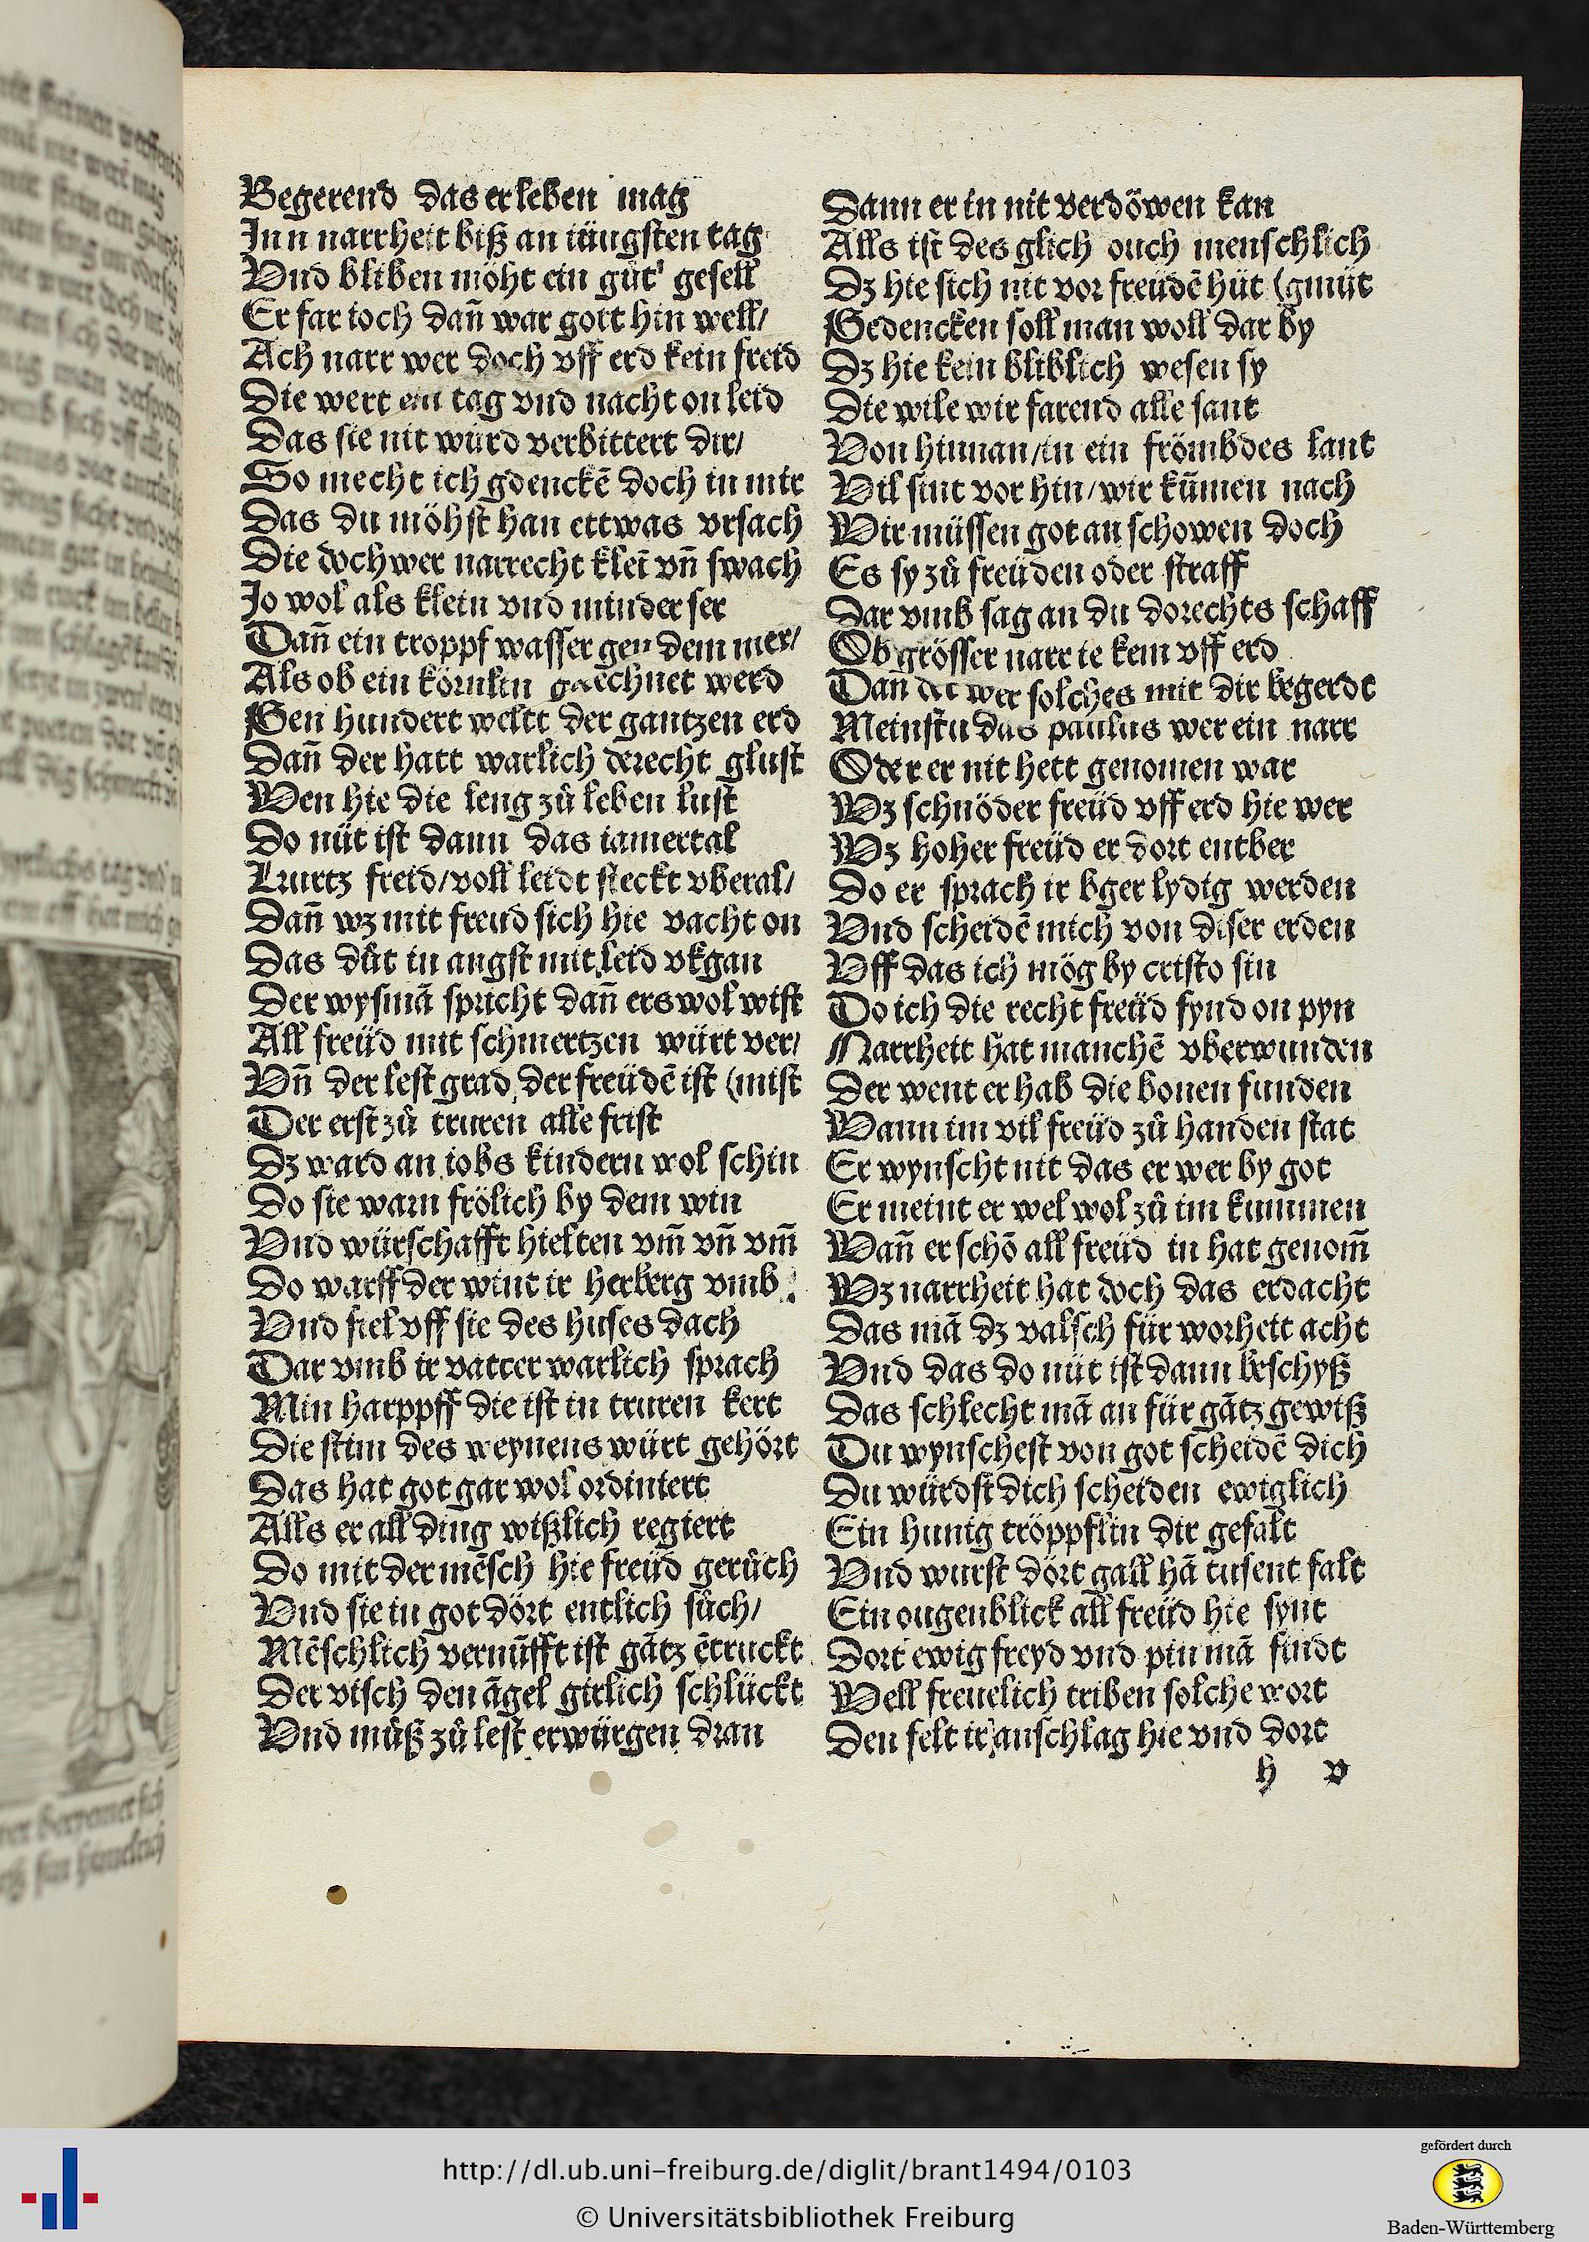 Begerend das er leben mag
Inn narrheit biß an iüngsten tag
Vnd bliben möht ein gůt' gesell
Er far ioch dañ war gott hin well/
Ach narr wer doch vff erd kein freid
Die wert ein tag vnd nacht on leid
Das sie nit würd verbittert dir/
So mecht ich gdenckē doch in mir
Das du möhst han ettwas vrsach
Die doch wer narrecht kleī vn̄ swach
Jo wol als klein vnd minder ser
Dañ ein troppf wasser gen dem mer/
Als ob ein körnlin gerechnet werd
Gen hundert weltt der gantzen erd
Dañ der hatt warlich derecht glust
Wen hie die leng zů leben lust
Do nüt ist dann das iamertal
Krurtz freid/voll leidt steckt vberal/
Dañ wz mit freud sich hie vacht on
Das důt in angst mit leid vßgan
Der wysmā spricht dañ ers wol wist
All freüd mit schmertzen würt ver/
Vn̄ der lest grad der freüdē ist (mist
Der erst zů truren alle frist
Dz ward an iobs kindern wol schin
Do sie warn frölich by dem win
Vnd würschafft hielten vm̄ vn̄ vm̄
Do warff der wint ir herberg vmb
Vnd fiel vff sie des huses dach
Dar vmb ir vatter warlich sprach
Min harppff die ist in truren kert
Die stim des weynens würt gehört
Das hat got gar wol ordiniert
Alls er all ding wißlich regiert
Do mit der mēsch hie freüd gerůch
Vnd sie in got dört entlich sůch/
Mēschlich vernūfft ist gātz ētruckt
Der visch den āgel girlich schlückt
Vnd můß zů lest erwürgen dran
Dann er in nit verdöwen kan
Alls ist des glich ouch menschlich
Dz hie sich nit vor freüdē hüt (gmüt
Gedencken soll man woll dar by
Dz hie kein bliblich wesen sy
Die wile wir farend alle sant
Von hinnan/in ein frömbdes lant
Vil sint vor hin/wir kūmen nach
Wir müssen got an schowen doch
Es sy zů freüden oder straff
Dar vmb sag an du dorechts schaff
Ob grösser narr ie kem vff erd
Dan der wer solches mit dir begerdt
Meinstu das paulus wer ein narr
Oder er nit hett genomen war
Wz schnöder freüd vff erd hie wer
Wz hoher freüd er dort entber
Do er sprach ir bger lydig werden
Vnd scheidē mich von diser erden
Vff das ich mög by cristo sin
Do ich die recht freüd fynd on pyn
Narrheit hat manchē vberwunden
Der went er hab die bonen funden
Wann im vil freüd zů handen stat
Er wynscht nit das er wer by got
Er meint er wel wol zů im kummen
Wañ er schō all freüd in hat genom̄
Wz narrheit hat doch das erdacht
Das mā dz valsch für worheit acht
Vnd das do nüt ist dann beschyß
Das schlecht mā an für gātz gewiß
Du wynschest von got scheidē dich
Du würdst dich scheiden ewiglich
Ein hunig tröppflin dir gefalt
Vnd wurst dört gall hā tusent falt
Ein ougenblick all freüd hie synt
Dort ewig freyd vnd pin mā findt
Well freuelich triben solche wort
Den felt ir anschlag hie vnd dort
h v
http://dl.ub.uni-freiburg.de/diglit/brant1494/0103
© Universitätsbibliothek Freiburg
gefördert durch
Baden-Württemberg